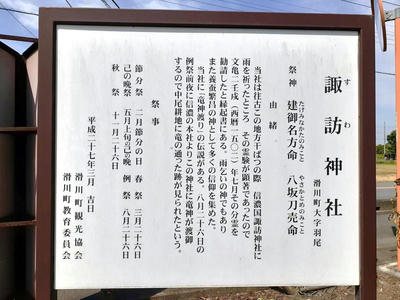 諏訪神社
すわ
滑川町大字羽尾
祭神 建御名方命 八坂刀売命
たけみなかたのみこと やさかとめのみこと
由緒
当社は往古この地方干ばつの際 信濃国諏訪神社に
雨を祈ったところ その霊験が顕著であったので
文亀二壬戌(西暦一五〇二)年七月その分霊を
勧請したと縁起書にある。雨乞いの神でもあり
また養蚕繁昌の神として多くの信仰を集めた。
当社に「竜神渡り」の伝説がある。八月二十六日の
例祭前夜に信濃の本社よりこの神社に竜神が渡御
するので中尾耕地に竜の通った跡が見られたという。
祭事
節分祭 二月節分の日 春祭 三月二十六日
己の晩祭 五月上旬当己の晩 例祭 八月二十六日
秋祭 十一月二十六日
平成二十七年三月 吉日
滑川町観光協会
滑川町教育委員会